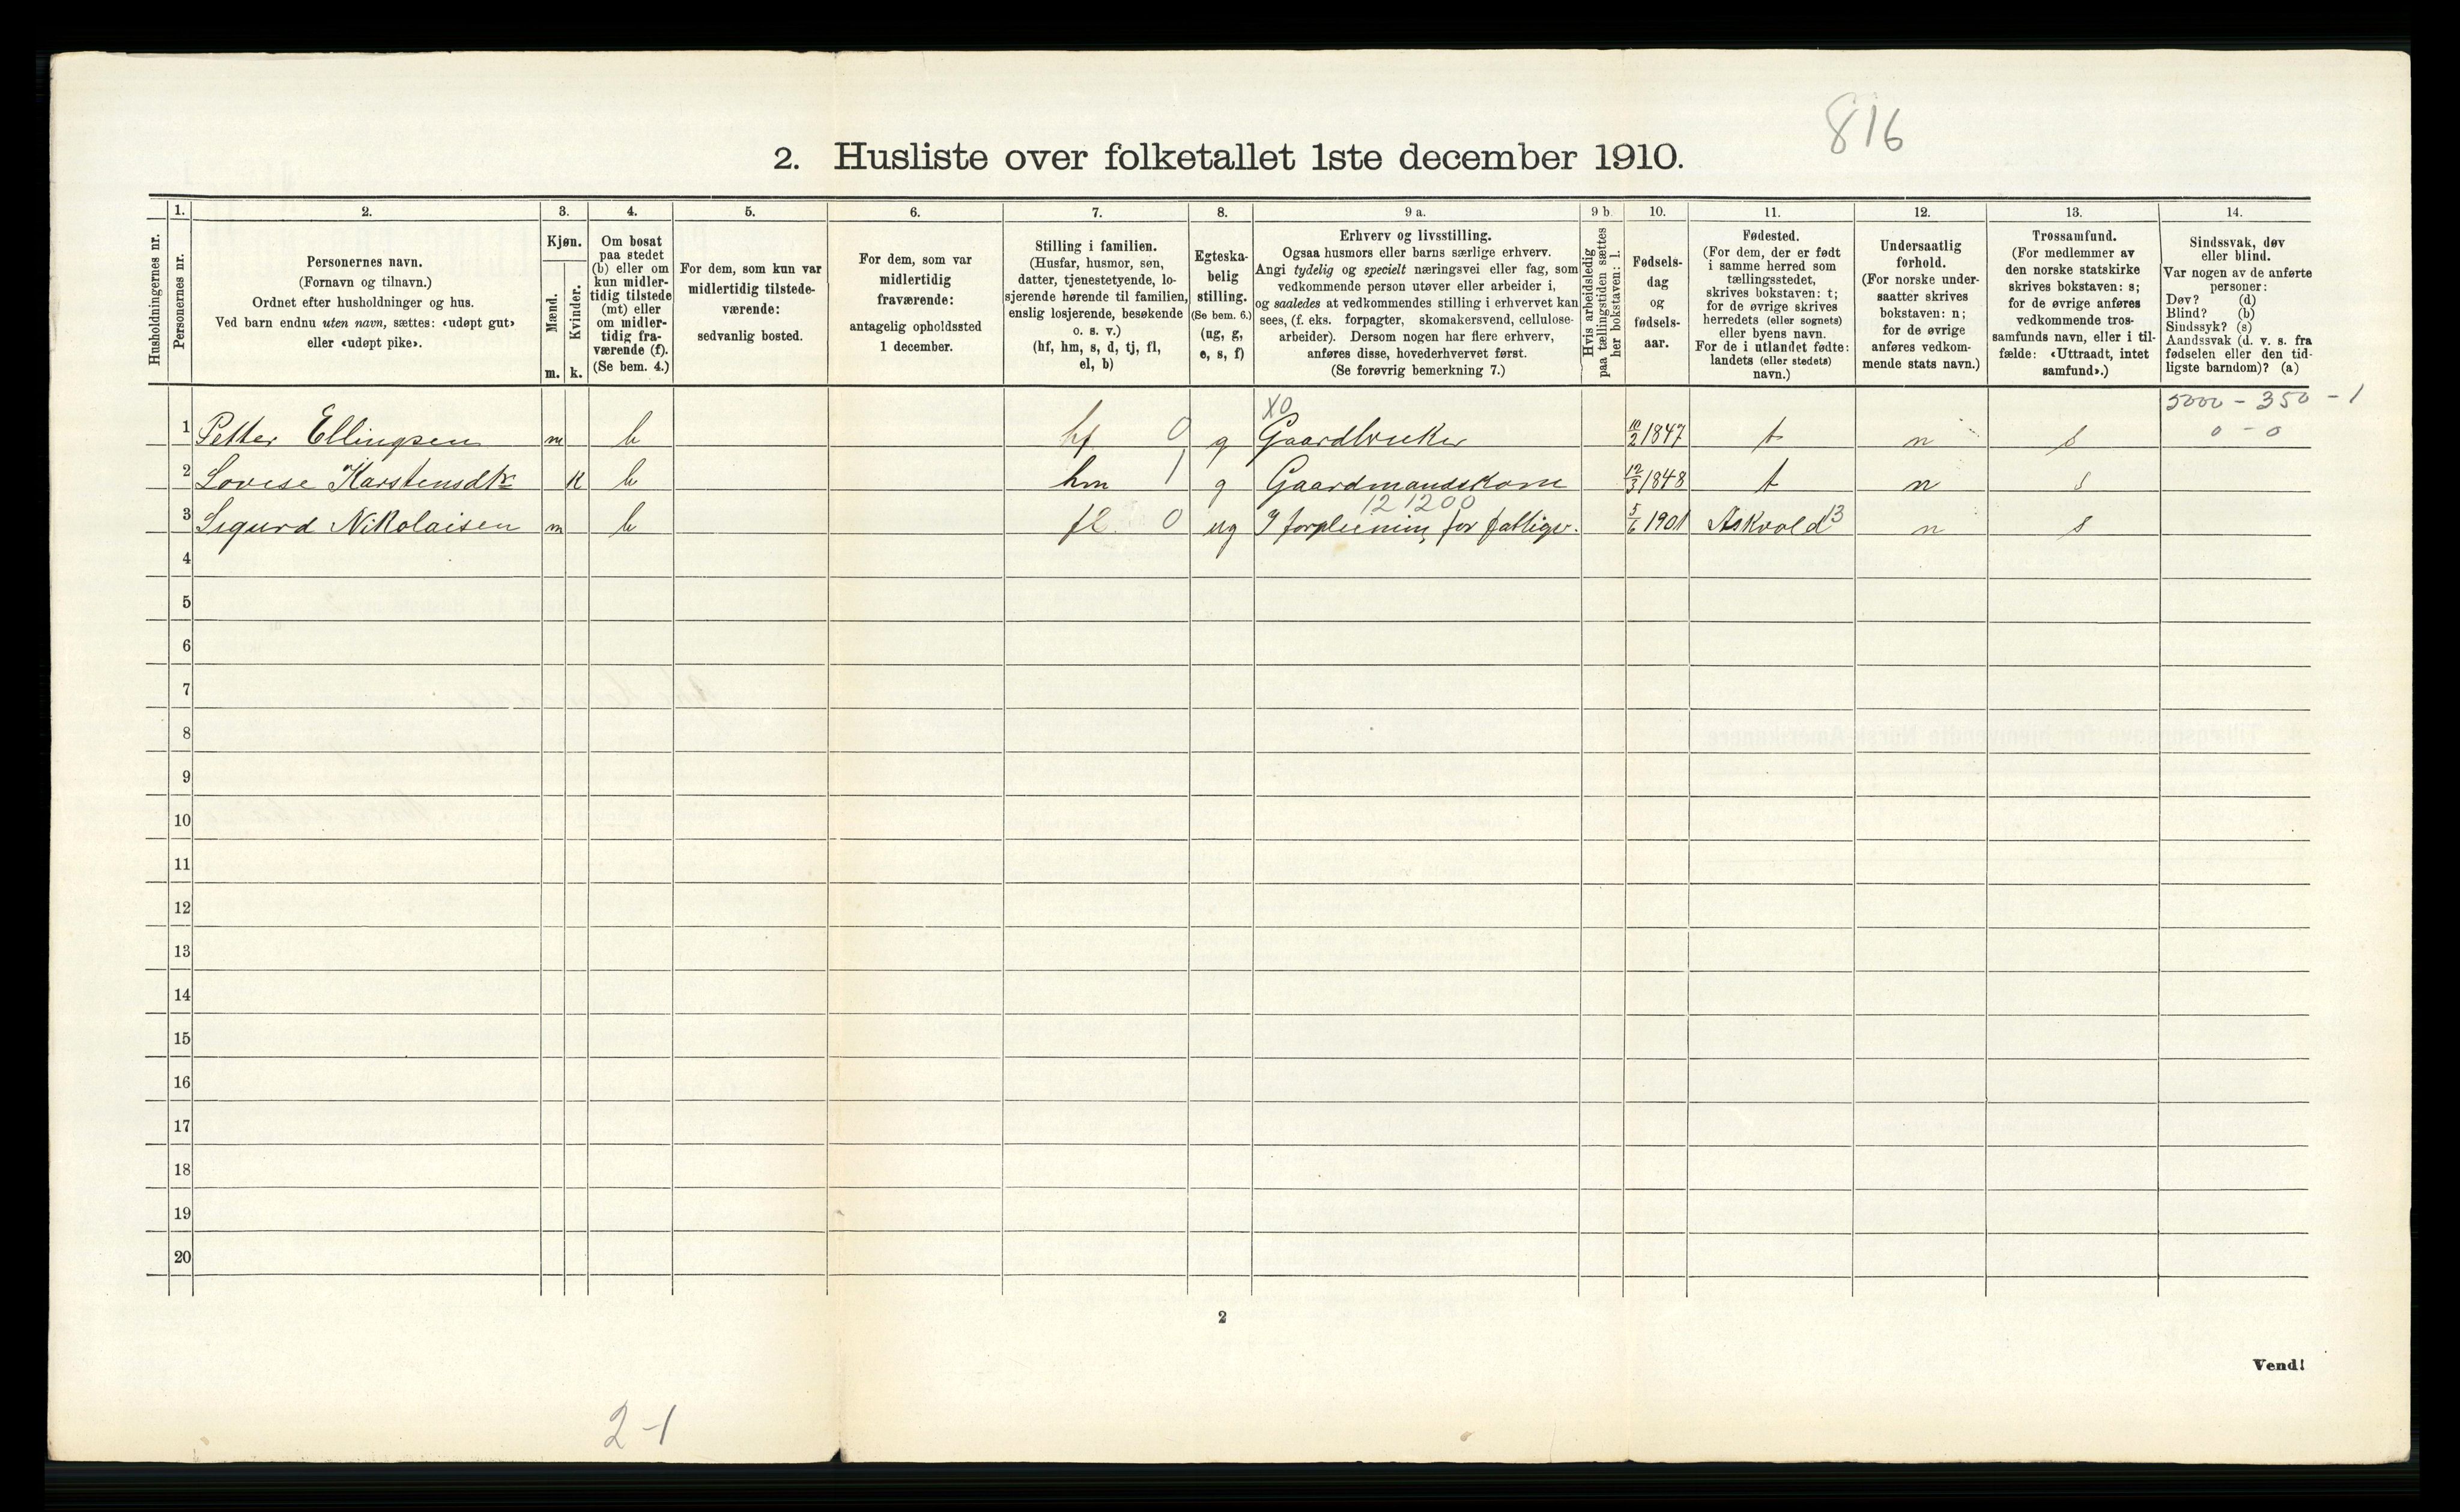 816
2. Husliste over folketallet 1ste december 1910.
Husholdningernes nr.
1.
Personernes nr.
2.
Personernes navn.
(Fornavn og tilnavn.)
Ordnet efter husholdninger og hus.
Ved barn endnu uten navn, sættes: «udøpt gut»
eller «udøpt pike».
3.
Kjøn.
Mænd.
Kvinder.
m. k.
4.
Om bosat
paa stedet
(b) eller om
kun midler-
tidig tilstede
(mt) eller
om midler-
tidig fra-
værende (f).
(Se bem. 4.)
5.
For dem, som kun var
midlertidig tilstede-
værende:
sedvanlig bosted.
6.
For dem, som var
midlertidig
fraværende:
antagelig opholdssted
1 december.
7.
Stilling i familien.
(Husfar, husmor, søn,
datter, tjenestetyende, lo-
sjerende hørende til familien,
enslig losjerende, besøkende
o. s. v.)
(hf, hm, s, d, tj, fl,
el, b)
8.
Egteska-
belig
stilling.
(Se bem. 6.)
(ug, g,
e, s, f)
9 a.
Erhverv og livsstilling.
Ogsaa husmors eller barns særlige erhverv.
Angi tydelig og specielt næringsvei eller fag, som
vedkommende person utøver eller arbeider i,
og saaledes at vedkommendes stilling i erhvervet kan
sees, (f. eks. forpagter, skomakersvend, cellulose-
arbeider). Dersom nogen har flere erhverv,
anføres disse, hovederhvervet først.
(Se forøvrig bemerkning 7.)
9 b.
Hvis arbeidsledig
paa tællingstiden sættes
her bokstaven: l.
10.
Fødsels-
dag
og
fødsels-
aar.
11.
Fødested.
(For dem, der er født
i samme herred som
tællingsstedet,
skrives bokstaven: t;
for de øvrige skrives
herredets (eller sognets)
eller byens navn.
For de i utlandet fødte:
landets (eller stedets)
navn.)
12.
Undersaatlig
forhold.
(For norske under-
saatter skrives
bokstaven: n;
for de øvrige
anføres vedkom-
mende stats navn.)
13.
Trossamfund.
(For medlemmer av
den norske statskirke
skrives bokstaven: s;
for de øvrige anføres
vedkommende tros-
samfunds navn, eller i til-
fælde: «Uttraadt, intet
samfund».)
14.
Sindssvak, døv
eller blind.
Var nogen av de anførte
personer:
Døv? (d)
Blind? (b)
Sindssyk? (s)
Aandssvak (d. v. s. fra
fødselen eller den tid-
ligste barndom)? (a)
X0 5000 - 350 - 1
1 Petter Ellingsen m b hf 0 g Gaardbruker 10/2 1847 t n s 0 - 0
2 Lovise Karstensdtr k b hm 1 g Gaardmandskone 12/3 1848 t n s
12 1200
3 Sigurd Nikolaisen m b fl. 0 ug I forpleining for fattigv. 5/6 1901 Askvold 13 n s
4
5
6
7
8
9
10
11
12
13
14
15
16
17
18
19
20
2
Vend!
2-1